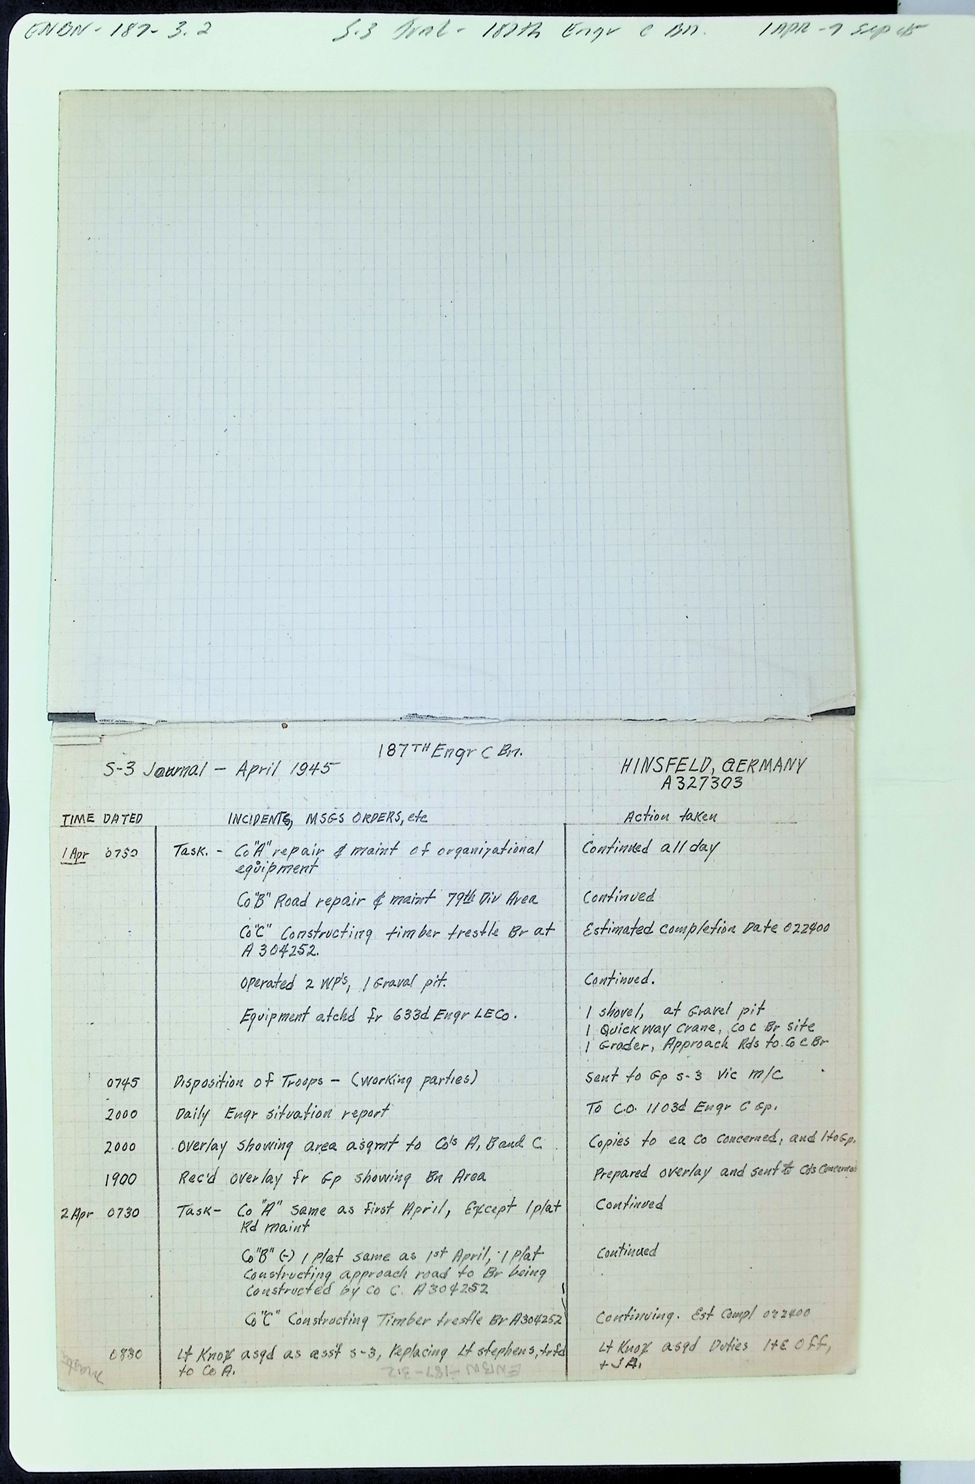 ENBN-187-3.2 S-3 Jrnl - 187th Engr C Bn. 1 Apr - 7 Sep 45
187TH Engr C Bn.
S-3 Journal - April 1945
HINSFELD, GERMANY
A327303
TIME DATED INCIDENTS, MSGS ORDERS, etc Action taken
1 Apr 0730 Task. - Co "A" repair & maint of organizational Continued all day
equipment
Co "B" Road repair & maint 79th Div Area Continued
Co "C" Constructing timber trestle Br at Estimated completion Date 022400
A 304252.
Operated 2 WP's, 1 Graval pit. Continued.
Equipment atchd fr 633d Engr LE Co. 1 shovel, at Gravel pit
1 Quickway Crane, Co C Br site
1 Grader, Approach Rds to Co C Br
0745 Disposition of Troops - (Working parties) Sent to Gp S-3 Vic m/c
2000 Daily Engr situation report To C.O. 1103d Engr C Gp.
2000 Overlay showing area asgmt to Co's A, B and C Copies to ea Co Concerned, and 1 to Gp.
1900 Rec'd overlay fr Gp showing Bn Area Prepared overlay and sent to Co's Concerned
2 Apr 0730 Task - Co "A" same as first April, Except 1 plat Continued
Rd maint
Co "B" (-) 1 plat same as 1st April, 1 plat Continued
Constructing approach road to Br being
Constructed by Co C. A304252
Co "C" Constructing Timber trestle Br A304252 Continuing. Est Compl 022400
0830 Lt Knox asgd as asst S-3, Replacing Lt Stephens, trfd Lt Knox asgd Duties I+E Off,
to Co A. + SA.
ENBN-187-3.2